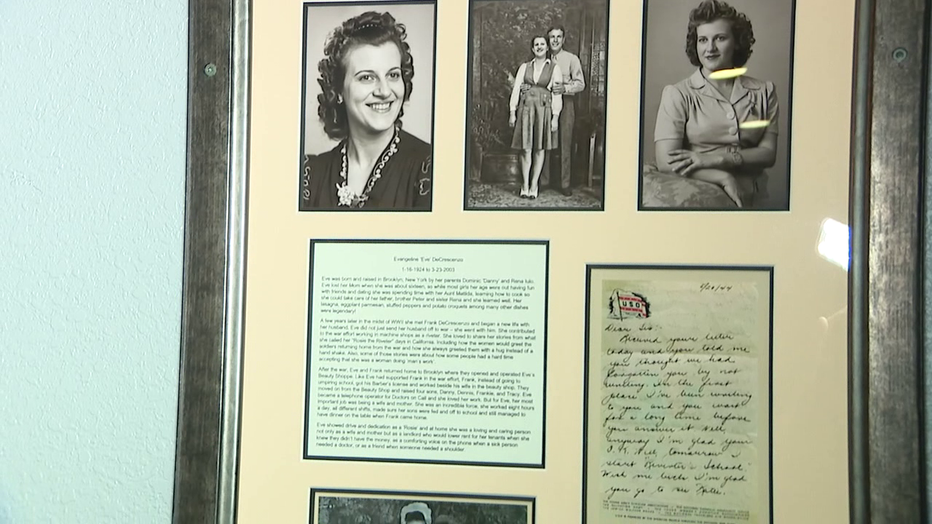 Evangeline 'Eve' DeCrescenzo
1-16-1924 to 3-23-2003
Eve was born and raised in Brooklyn, New York by her parents Dominic 'Danny' and Rena Iulo.
Eve lost her Mom when she was about sixteen, so while most girls her age were out having fun
with friends and dating she was spending time with her Aunt Matilda, learning how to cook so
she could take care of her father, brother Peter and sister Rena and she learned well. Her
lasagna, eggplant parmesan, stuffed peppers and potato croquets among many other dishes
were legendary!
A few years later in the midst of WWII she met Frank DeCrescenzo and began a new life with
her husband. Eve did not just send her husband off to war – she went with him. She contributed
to the war effort working in machine shops as a riveter. She loved to share her stories from what
she called her "Rosie the Riveter" days in California. Including how the women would greet the
soldiers returning home from the war and how she always greeted them with a hug instead of a
hand shake. Also, some of those stories were about how some people had a hard time
accepting that she was a woman doing 'man's work'.
After the war, Eve and Frank returned home to Brooklyn where they opened and operated Eve's
Beauty Shoppe. Like Eve had supported Frank in the war effort, Frank, instead of going to
umpiring school, got his Barber's license and worked beside his wife in the beauty shop. They
moved on from the Beauty Shop and raised four sons, Danny, Dennis, Frankie, and Tracy. Eve
became a telephone operator for Doctors on Call and she loved her work. But for Eve, her most
important job was being a wife and mother. She was an incredible force; she worked eight hours
a day, all different shifts, made sure her sons were fed and off to school and still managed to
have dinner on the table when Frank came home.
Eve showed drive and dedication as a 'Rosie' and at home she was a loving and caring person
not only as a wife and mother but as a landlord who would lower rent for her tenants when she
knew they didn't have the money, as a comforting voice on the phone when a sick person
needed a doctor, or as a friend when someone needed a shoulder.
USO
Dear Sis:
Received your letter
today and you told me
you thought we had
forgotten you by not
writing. In the first
place I've been writing
to you and you wait
for a long time before
you answer it. Well
anyway I'm glad your
tomorrow I
start Riveter's School.
Wish me luck. I'm glad
you go to see